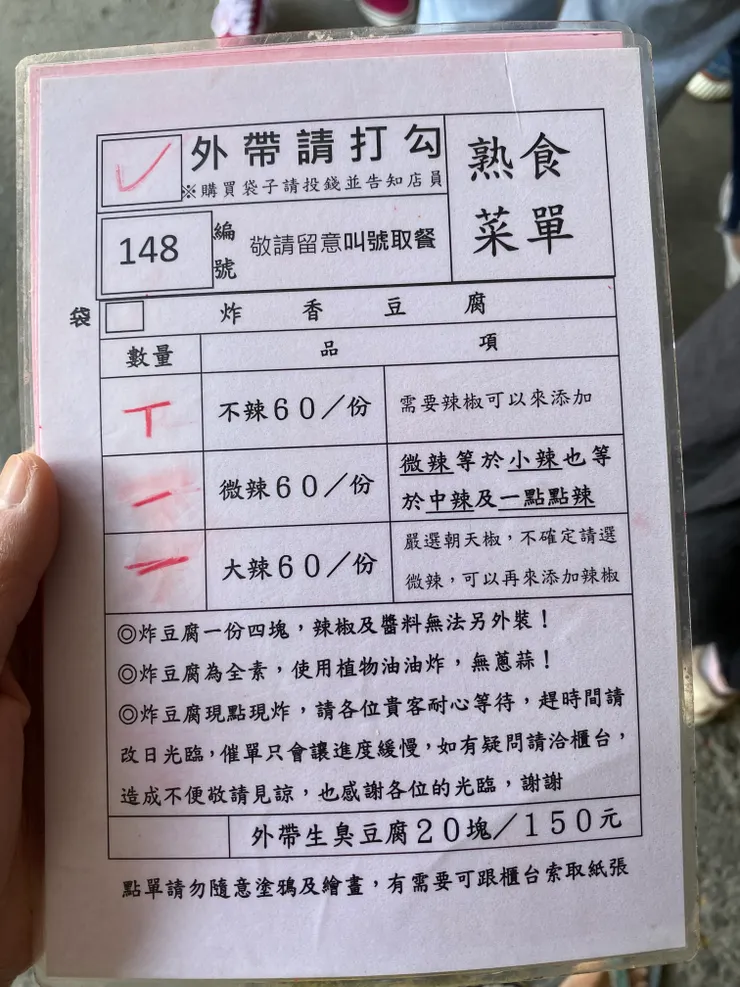 外帶請打勾
※購買袋子請投錢並告知店員
熟食
菜單
148
編號
敬請留意叫號取餐
袋
炸香豆腐
數量 品項
不辣60／份 需要辣椒可以來添加
微辣60／份 微辣等於小辣也等
於中辣及一點點辣
大辣60／份 嚴選朝天椒，不確定請選
微辣，可以再來添加辣椒
◎炸豆腐一份四塊，辣椒及醬料無法另外裝！
◎炸豆腐為全素，使用植物油油炸，無蔥蒜！
◎炸豆腐現點現炸，請各位貴客耐心等待，趕時間請
改日光臨，催單只會讓進度緩慢，如有疑問請洽櫃台，
造成不便敬請見諒，也感謝各位的光臨，謝謝
外帶生臭豆腐20塊／150元
點單請勿隨意塗鴉及繪畫，有需要可跟櫃台索取紙張